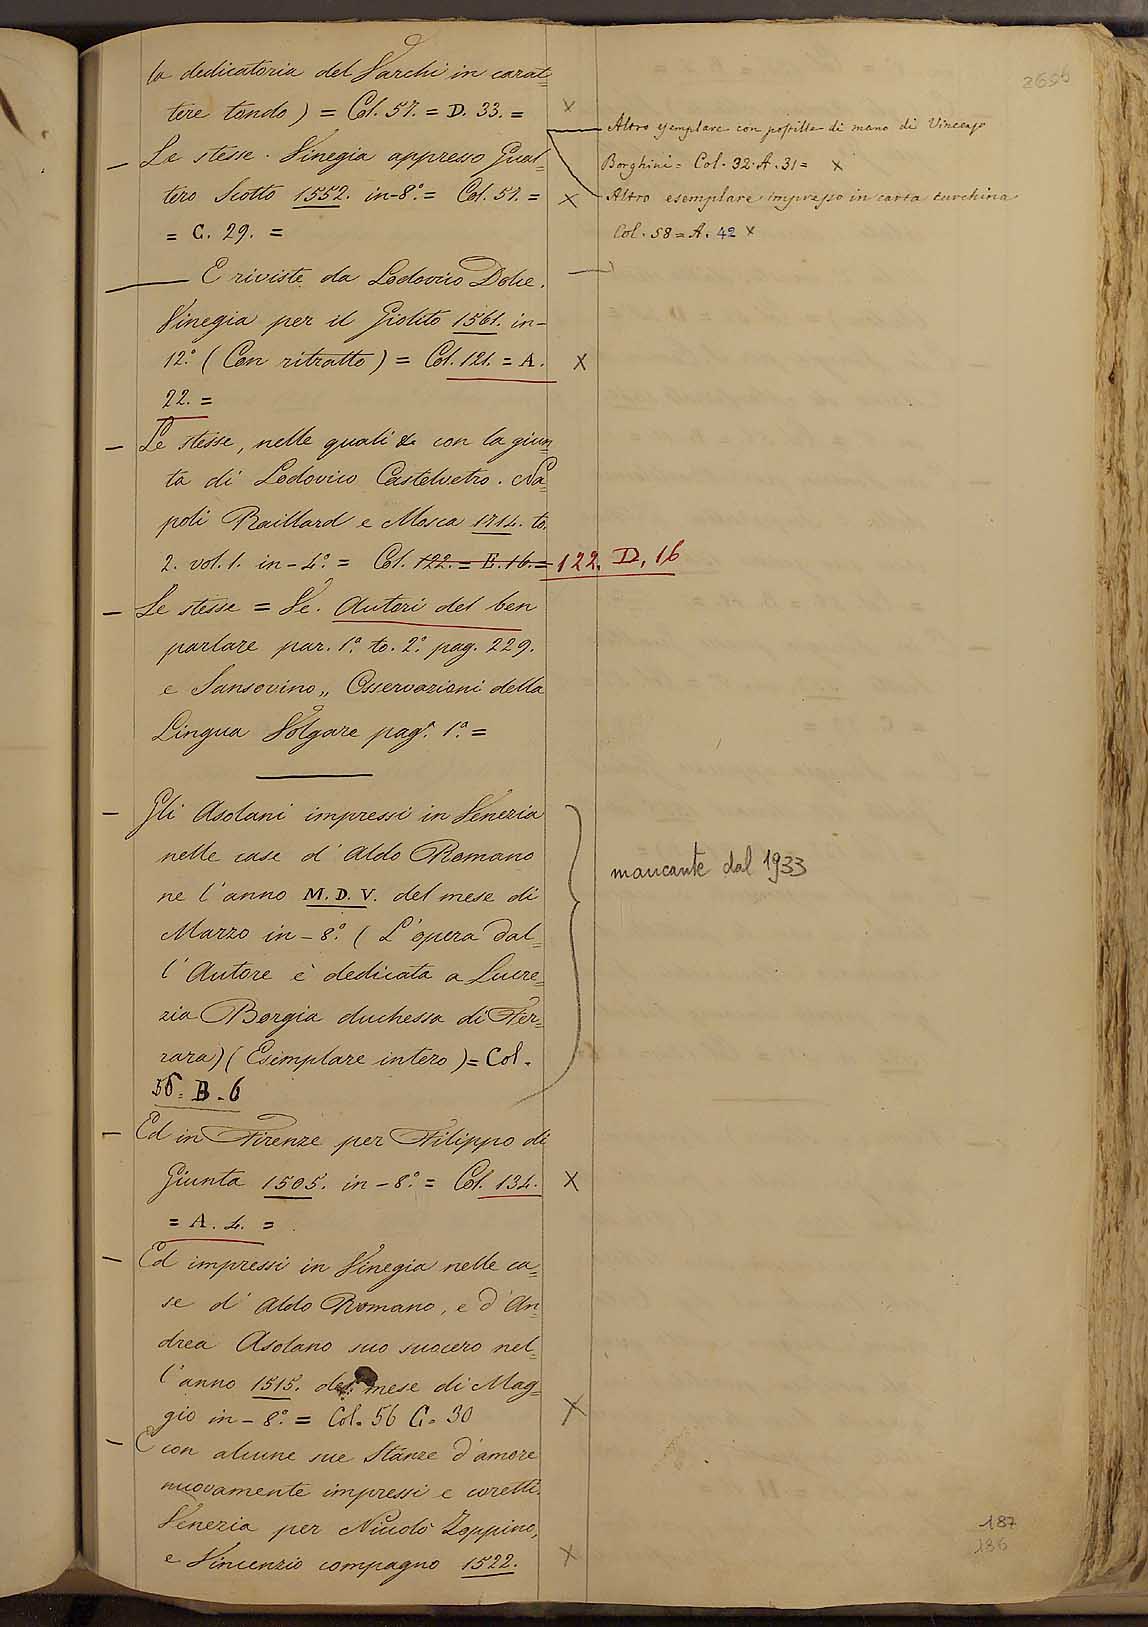 la dedicatoria del Varchi in carat=
tere tondo) = Col. 57. = D. 33. =
— Le stesse. Vinegia appresso Gual=
tero Scotto 1552. in-8.° = Col. 57. =
= C. 29. =
— E riviste da Lodovico Dolce.
Vinegia per il Giolito 1561. in-
12.° (Con ritratto) = Col. 121. = A.
22. =
— Le stesse, nelle quali con la giun
ta di Lodovico Castelvetro. Na=
poli Raillard e Mosca 1714. to.
2. vol. 1. in-4.° = Col. 122. = E. 16. = 122. D. 16
— Le stesse = Ve. Autori del ben
parlare par. 1.a to. 2.° pag. 229.
e Sansovino,, Osservazioni della
Lingua Volgare pag. 1.a =
— Gli Asolani impressi in Venezia
nelle case d'Aldo Romano
ne l'anno M.D.V. del mese di
Marzo in-8.° (L'opera dal=
l'Autore è dedicata a Lucre=
zia Borgia duchessa di Fer=
rara) (Esimplare intero) = Col.
56. B. 6
— Ed in Firenze per Filippo di
Giunta 1505. in-8.° = Col. 134.
= A. 4. =
— Ed impressi in Vinegia nelle ca=
se d'Aldo Romano, e d'An=
drea Asolano suo suocero nel=
l'anno 1515. del mese di Mag=
gio in-8.° = Col. 56 G. 30
— E con alcune sue Stanze d'amore
nuovamente impressi e coretti.
Venezia per Niccolò Zoppino,
e Vincenzio compagno 1522.
X
X
X
X
X
X
Altro esemplare con postille di mano di Vincenzo
Borghini = Col. 32. A. 31 = X
Altro esemplare impresso in carta turchina
Col. 58 = A. 42 X
mancante dal 1933
187
186